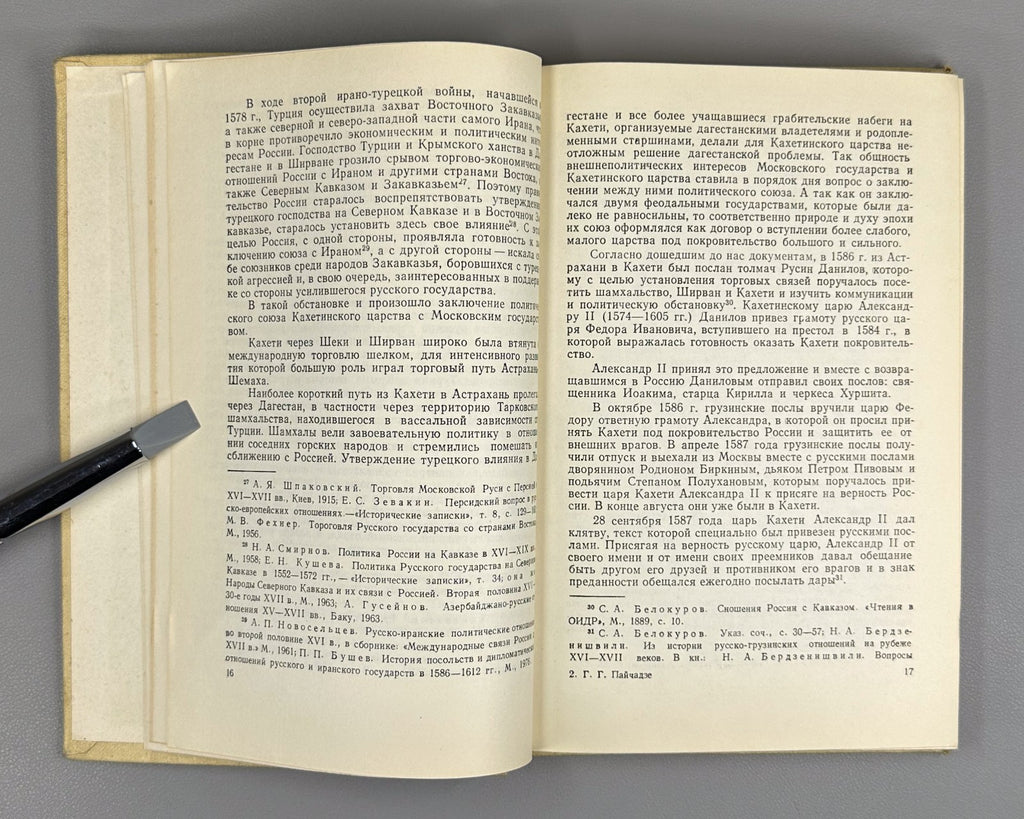 В ходе второй ирано-турецкой войны, начавшейся
1578 г., Турция осуществила захват Восточного Закавказ
а также северной и северо-западной части самого Ирана, ч
в корне противоречило экономическим и политическим инт
ресам России. Господство Турции и Крымского ханства в Д
гестане и в Ширване грозило срывом торгово-экономическ
отношений России с Ираном и другими странами Востока,
также Северным Кавказом и Закавказьем²⁷. Поэтому прав
тельство России старалось воспрепятствовать утвержден
турецкого господства на Северном Кавказе и в Восточном З
кавказье, старалось установить здесь свое влияние²⁸. С э
целью Россия, с одной стороны, проявляла готовность к з
ключению союза с Ираном²⁹, а с другой стороны — искала с
бе союзников среди народов Закавказья, боровшихся с туре
кой агрессией и, в свою очередь, заинтересованных в поддер
ке со стороны усилившегося русского государства.
В такой обстановке и произошло заключение политиче
ского союза Кахетинского царства с Московским государс
вом.
Кахети через Шеки и Ширван широко была втянута
международную торговлю шелком, для интенсивного разв
тия которой большую роль играл торговый путь Астрахань
Шемаха.
Наиболее короткий путь из Кахети в Астрахань пролега
через Дагестан, в частности через территорию Тарковско
шамхальства, находившегося в вассальной зависимости о
Турции. Шамхалы вели завоевательную политику в отнош
нии соседних горских народов и стремились помешать
сближению с Россией. Утверждение турецкого влияния в Д
²⁷ А. Я. Шпаковский. Торговля Московской Руси с Персией
XVI—XVII вв., Киев, 1915; Е. С. Зевакин. Персидский вопрос в ру
ско-европейских отношениях.—«Исторические записки», т. 8, с. 129—
М. В. Фехнер. Тороговля Русского государства со странами Востока
М., 1956.
²⁸ Н. А. Смирнов. Политика России на Кавказе в XVI—XIX вв.
М., 1958; Е. Н. Кушева. Политика Русского государства на Северн
Кавказе в 1552—1572 гг., — «Исторические записки», т. 34; она ж
Народы Северного Кавказа и их связи с Россией. Вторая половина XVI—
30-е годы XVII в., М., 1963; А. Гусейнов. Азербайджано-русские от
ношения XV—XVII вв., Баку, 1963.
²⁹ А. П. Новосельцев. Русско-иранские политические отношен
во второй половине XVI в., в сборнике: «Международные связи России
XVII в.» М., 1961; П. П. Бушев. История посольств и дипломатическ
отношений русского и иранского государств в 1586—1612 гг., М., 1976
16
гестане и все более учащавшиеся грабительские набеги на
Кахети, организуемые дагестанскими владетелями и родопле-
менными старшинами, делали для Кахетинского царства не-
отложным решение дагестанской проблемы. Так общность
внешнеполитических интересов Московского государства и
Кахетинского царства ставила в порядок дня вопрос о заклю-
чении между ними политического союза. А так как он заклю-
чался двумя феодальными государствами, которые были да-
леко не равносильны, то соответственно природе и духу эпохи
их союз оформлялся как договор о вступлении более слабого,
малого царства под покровительство большого и сильного.
Согласно дошедшим до нас документам, в 1586 г. из Аст-
рахани в Кахети был послан толмач Русин Данилов, которо-
му с целью установления торговых связей поручалось посе-
тить шамхальство, Ширван и Кахети и изучить коммуникации
и политическую обстановку³⁰. Кахетинскому царю Александ-
ру II (1574—1605 гг.) Данилов привез грамоту русского ца-
ря Федора Ивановича, вступившего на престол в 1584 г., в
которой выражалась готовность оказать Кахети покровитель-
ство.
Александр II принял это предложение и вместе с возвра-
щавшимся в Россию Даниловым отправил своих послов: свя-
щенника Иоакима, старца Кирилла и черкеса Хуршита.
В октябре 1586 г. грузинские послы вручили царю Фе-
дору ответную грамоту Александра, в которой он просил при-
нять Кахети под покровительство России и защитить ее от
внешних врагов. В апреле 1587 года грузинские послы полу-
чили отпуск и выехали из Москвы вместе с русскими послами
дворянином Родионом Биркиным, дьяком Петром Пивовым и
подьячим Степаном Полухановым, которым поручалось при-
вести царя Кахети Александра II к присяге на верность Рос-
сии. В конце августа они уже были в Кахети.
28 сентября 1587 года царь Кахети Александр II дал
клятву, текст которой специально был привезен русскими пос-
лами. Присягая на верность русскому царю, Александр II от
своего имени и от имени своих преемников давал обещание
быть другом его друзей и противником его врагов и в знак
преданности обещался ежегодно посылать дары³¹.
³⁰ С. А. Белокуров. Сношения России с Кавказом. «Чтения в
ОИДР», М., 1889, с. 10.
³¹ С. А. Белокуров. Указ. соч., с. 30—57; Н. А. Бердзе-
нишвили. Из истории русско-грузинских отношений на рубеже
XVI—XVII веков. В кн.: Н. А. Бердзенишвили. Вопросы
2. Г. Г. Пайчадзе
17